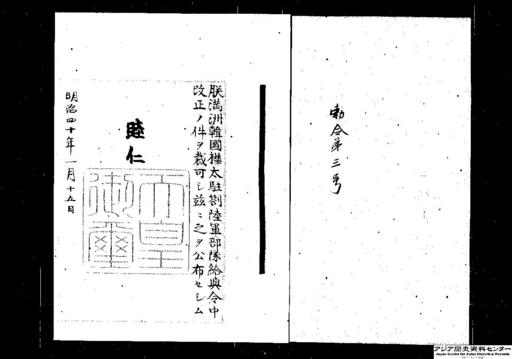 勅令第三号
朕満洲韓國樺太駐劄陸軍部隊給與令中
改正ノ件ヲ裁可シ茲ニ之ヲ公布セシム
睦仁
天皇
御璽
明治四十年一月十五日
アジア歴史資料センター
Japan Center for Asian Historical Records